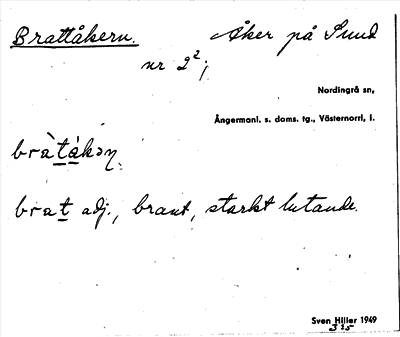 Brattåkern. Åker på Sund
nr 2²;
Nordingrå sn,
Ångermanl. s. doms. tg., Västernorrl. l.
bràtákəṇ.
brat adj., brant, starkt lutande.
Sven Hiller 1949
325